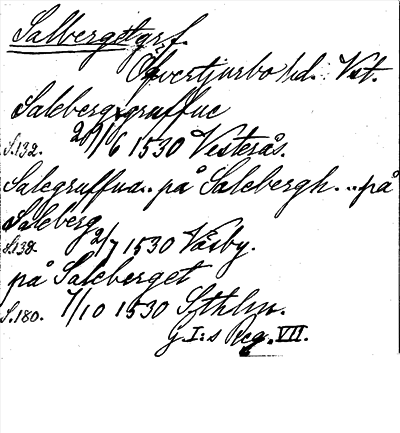 Salbergsgrf.
Öfvertjurbo hd. Vst.
Saleberg gruffue
S.132. 29/6 1530 Vesterås.
Salegruffua.. på Salebergh... på
Saleberg
S.138. 2/7 1530 Väsby.
på Saleberget
S.180. 7/10 1530 Sthlm.
G.I:s Reg. VII.